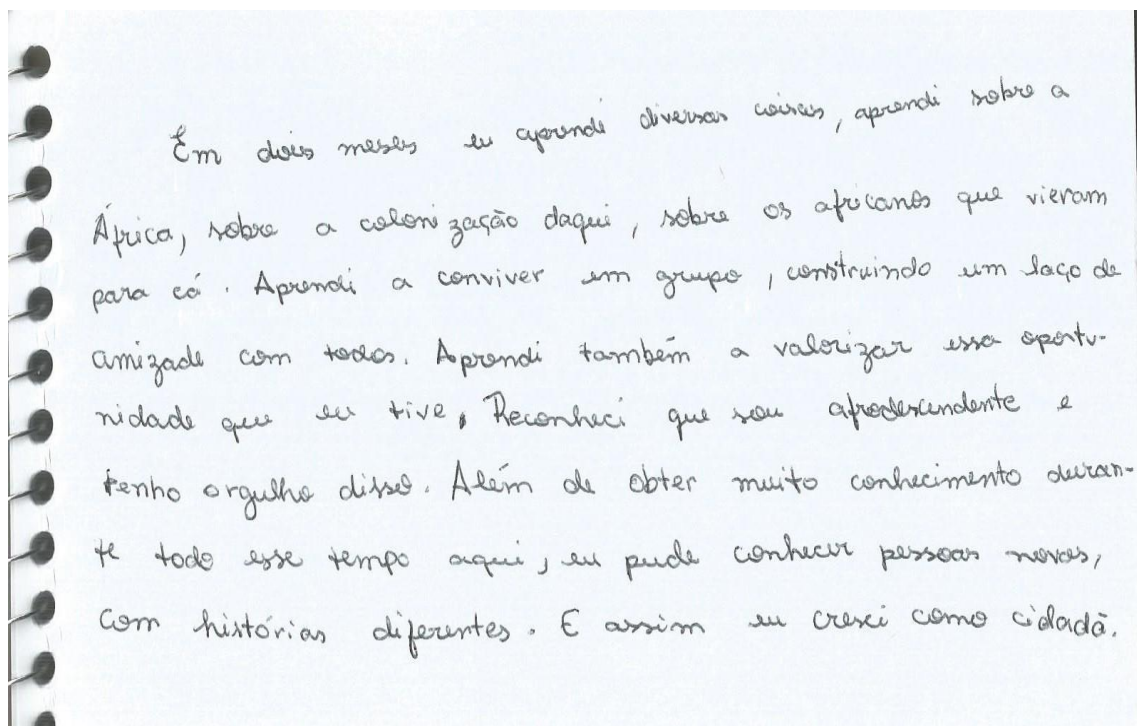 Em dois meses eu aprendi diversas coisas, aprendi sobre a
África, sobre a colonização daqui, sobre os africanos que vieram
para cá. Aprendi a conviver em grupo, construindo um laço de
amizade com todos. Aprendi também a valorizar essa oportu-
nidade que eu tive, Reconheci que sou afrodescendente e
tenho orgulho disso. Além de obter muito conhecimento duran-
te todo esse tempo aqui, eu pude conhecer pessoas novas,
com histórias diferentes. E assim eu cresci como cidadã.